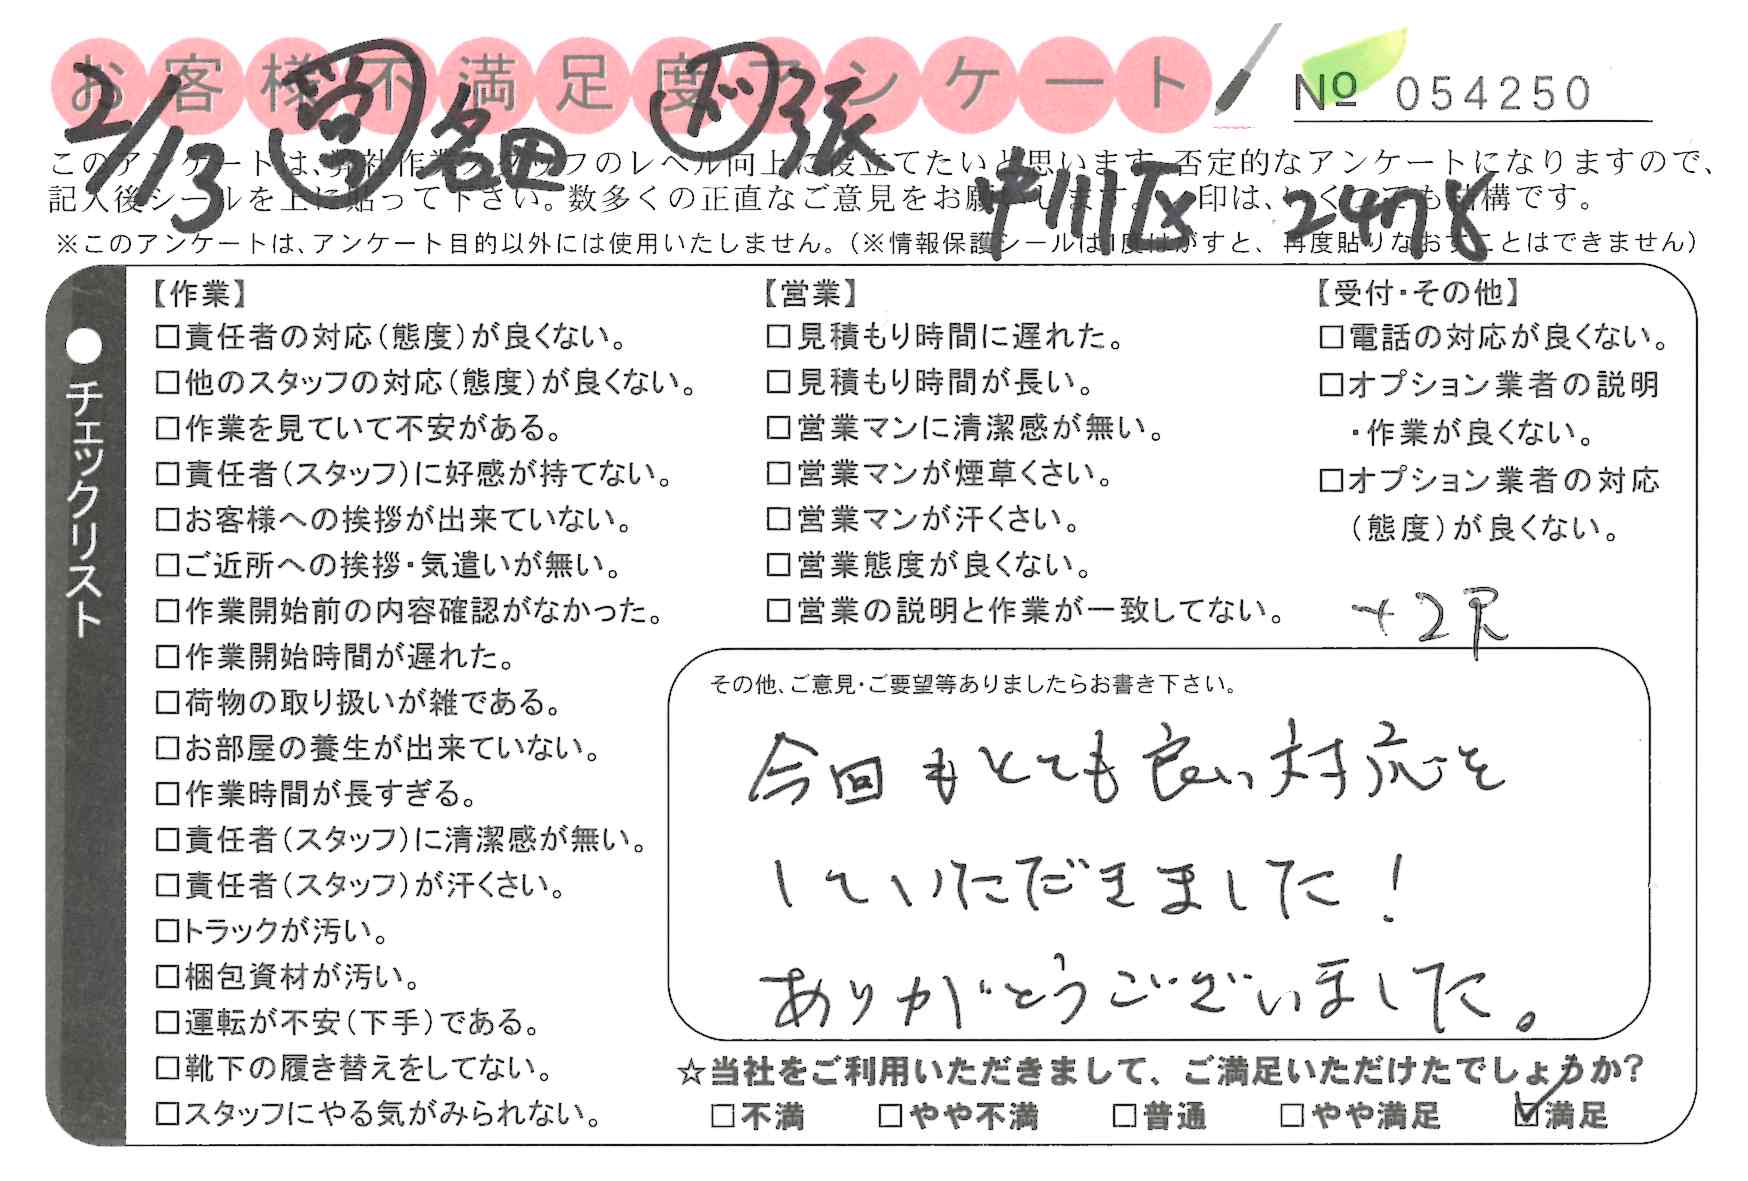 お客様不満足度アンケート
№ 054250
2/13 営 名 ド 張
中川区 2478
このアンケートは、弊社作業スタッフのレベル向上に役立てたいと思います。否定的なアンケートになりますので、
記入後シールを上に貼って下さい。数多くの正直なご意見をお願いします。 印は、いくつでも結構です。
※このアンケートは、アンケート目的以外には使用いたしません。(※情報保護シールは1度はがすと、再度貼りなおすことはできません)
●チェックリスト
【作業】
□責任者の対応(態度)が良くない。
□他のスタッフの対応(態度)が良くない。
□作業を見ていて不安がある。
□責任者(スタッフ)に好感が持てない。
□お客様への挨拶が出来ていない。
□ご近所への挨拶・気遣いが無い。
□作業開始前の内容確認がなかった。
□作業開始時間が遅れた。
□荷物の取り扱いが雑である。
□お部屋の養生が出来ていない。
□作業時間が長すぎる。
□責任者(スタッフ)に清潔感が無い。
□責任者(スタッフ)が汗くさい。
□トラックが汚い。
□梱包資材が汚い。
□運転が不安(下手)である。
□靴下の履き替えをしてない。
□スタッフにやる気がみられない。
【営業】
□見積もり時間に遅れた。
□見積もり時間が長い。
□営業マンに清潔感が無い。
□営業マンが煙草くさい。
□営業マンが汗くさい。
□営業態度が良くない。
□営業の説明と作業が一致してない。
【受付・その他】
□電話の対応が良くない。
□オプション業者の説明
・作業が良くない。
□オプション業者の対応
(態度)が良くない。
+2R
その他、ご意見・ご要望等ありましたらお書き下さい。
今回もとても良い対応を
していただきました!
ありがとうございました。
☆当社をご利用いただきまして、ご満足いただけたでしょうか?
□不満 □やや不満 □普通 □やや満足 ☑満足